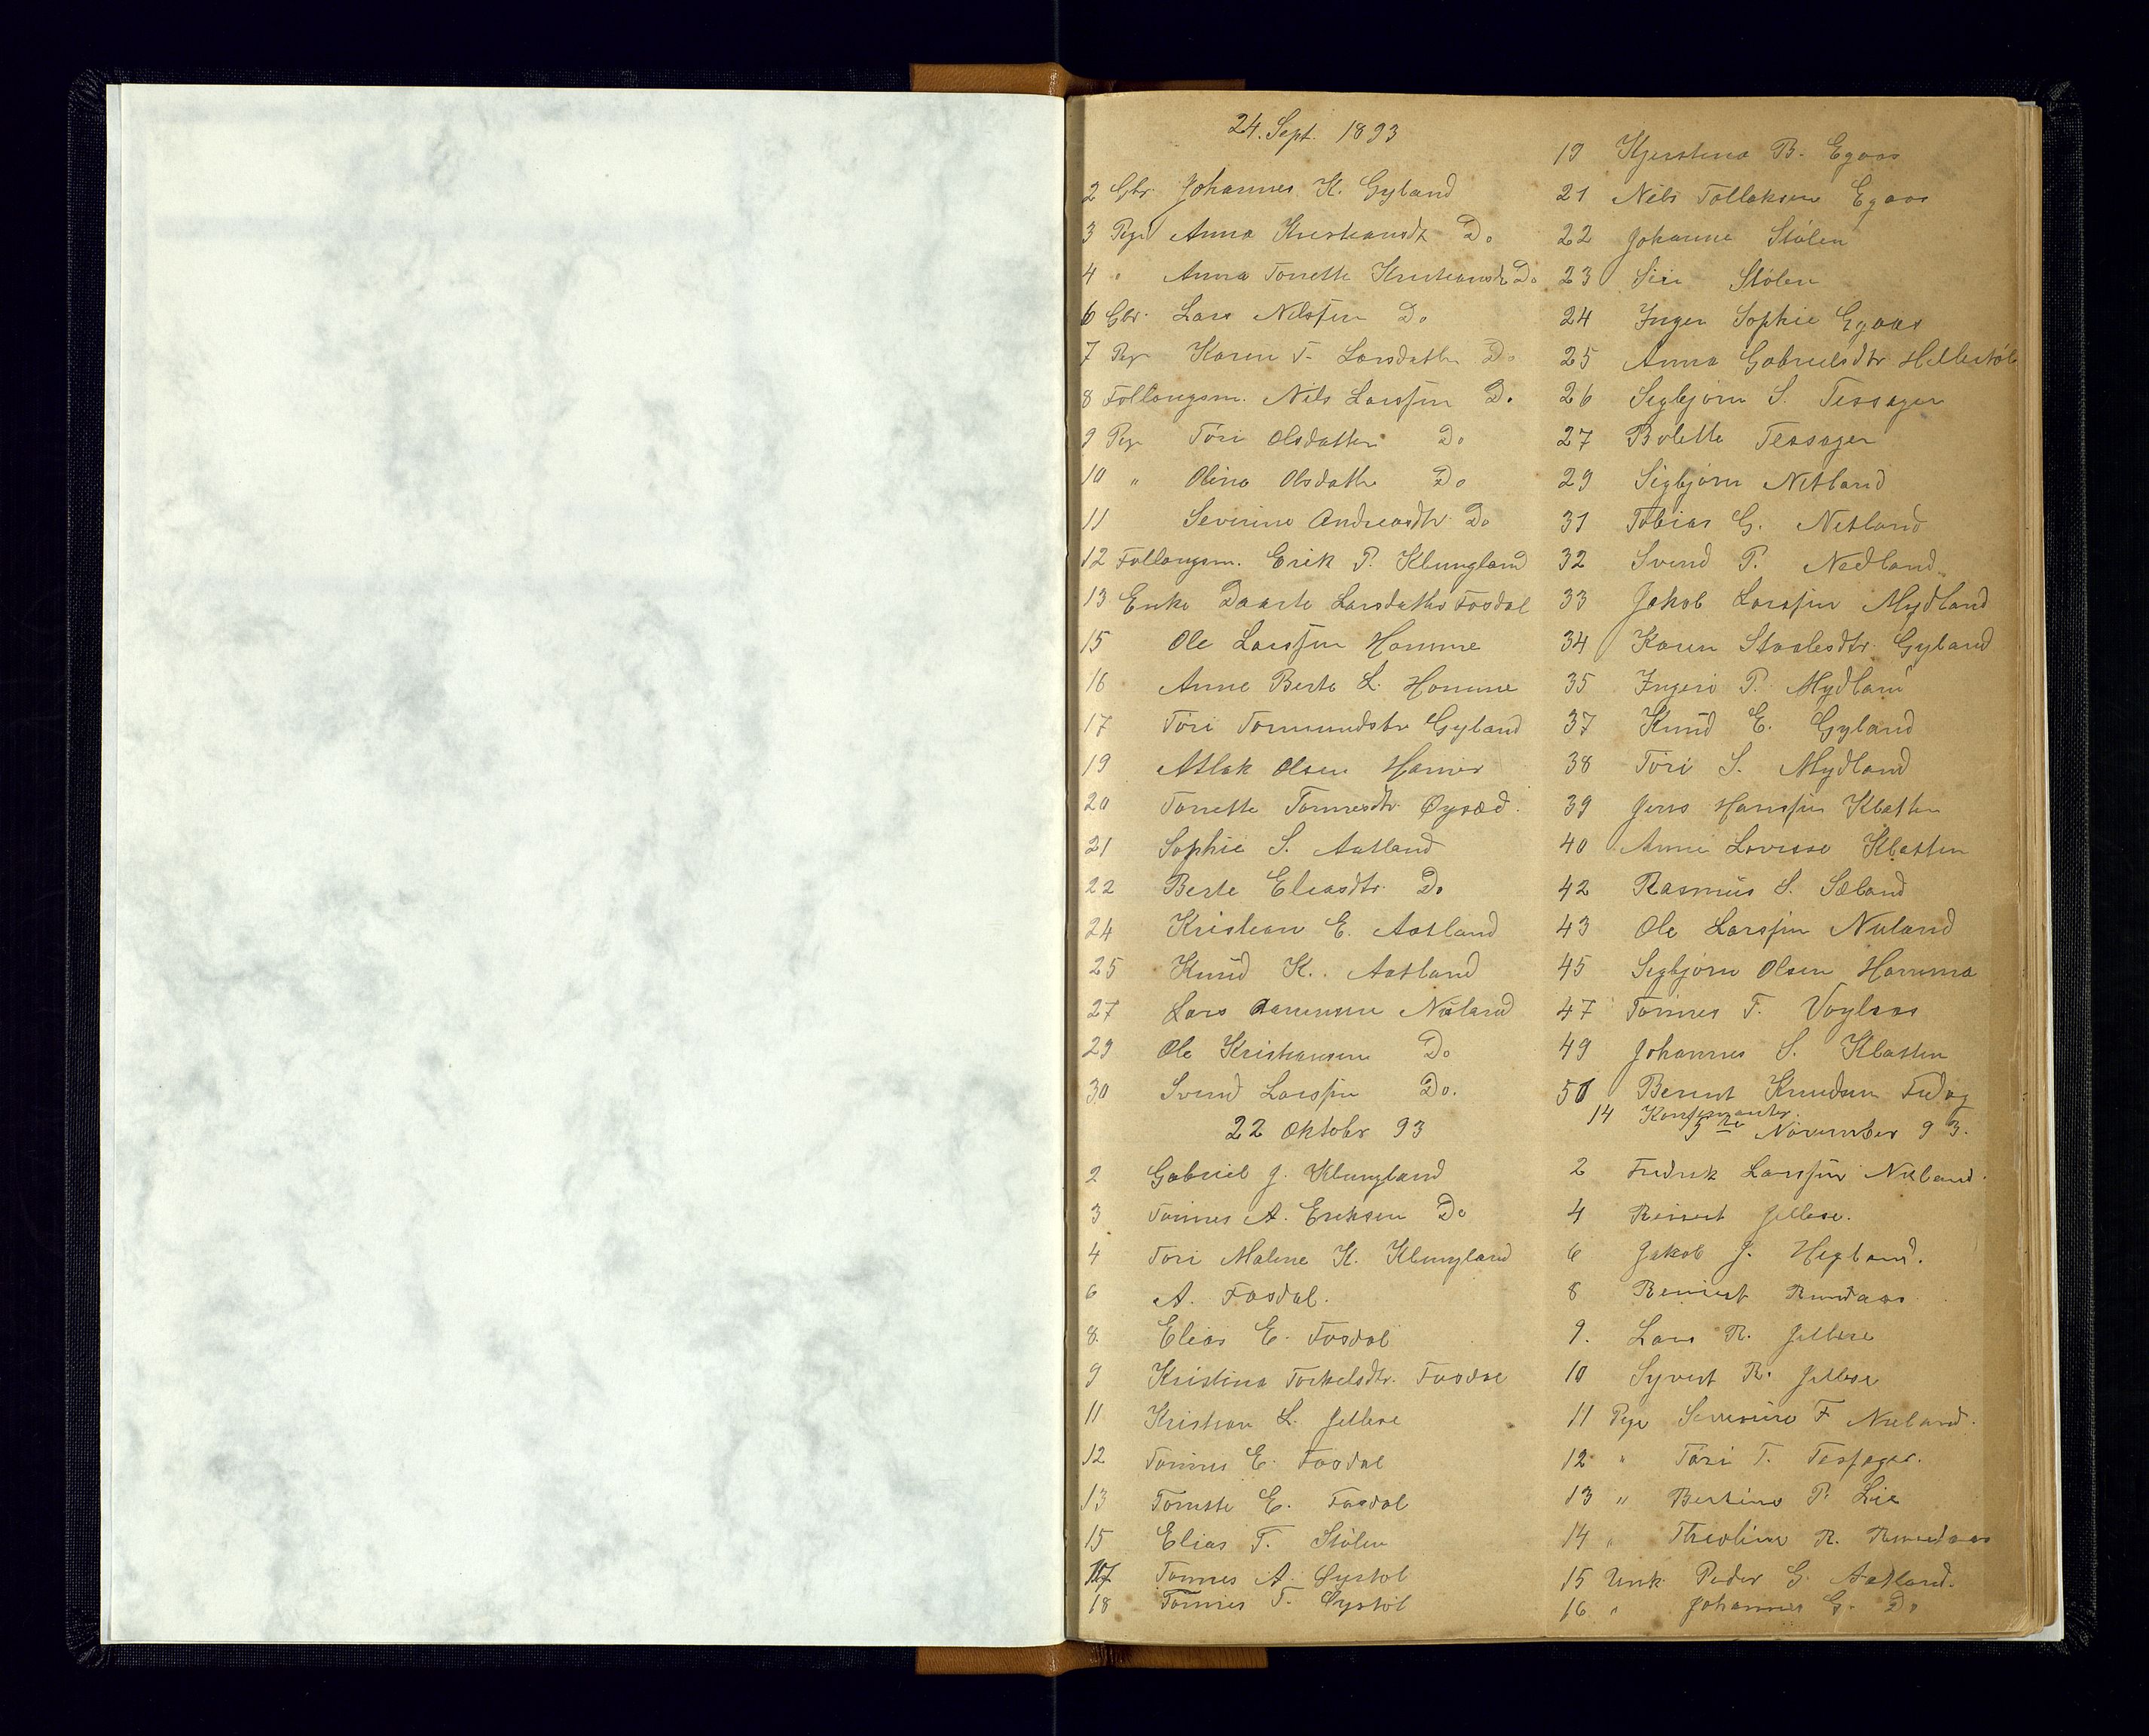 24. Sept. 1893
2 Gbr. Johannes K. Gyland
3 Pige Anna Kristiansdt. Do
4 " Anna Tonette Kristiansdt. Do
6 Gbr. Lars Nilssen Do
7 Pige Karen T. Larsdatter Do
8 Follaugsm. Nils Larssen Do
9 Pige Töri Olsdatter Do
10 " Olina Olsdatter Do
11 Severine Andreasdtr. Do
12 Follaugsm. Erik P. Klungland
13 Enke Daarte Larsdatter Fosdal
15 Ole Larssen Homme
16 Anne Berte L. Homme
17 Töri Tormundsdtr Gyland
19 Atlak Olsen
20 Tonette Tönnesdtr. Øysæd.
21 Sophie S. Aatland
22 Berte Eliasdtr. Do
24 Kristian E. Aatland
25 Knud K. Aatland
27 Lars Aanensen Nuland
29 Ole Kristiansen Do
30 Svend Larssen Do.
22 Oktobr 93
2 Gabriel J. Klungland
3 Tönnes A. Eriksen Do
4 Tori Malene K. Klungland
6 A. Fosdal.
8. Elias E. Fosdal
9 Kristina Torkelsdtr. Fosdal
11 Kristian L. Jellese
12 Tönnes E. Fosdal
13 Tonette E. Fosdal
15 Elias T. Stölen
17 Tönnes A. Øystöl
18 Tönnes T. Øystöl
19 Kjerstina B. Egaas
21 Nils Tollaksen Egaas
22 Johanne Stölen
23 Siri Stölen
24 Inger Sophie Egaas
25 Anna Gabrielsdtr Hellestöl
26 Sigbjörn S. Tessager
27 Bolette Tessager
29 Sigbjörn Netland
31 Tobias G. Netland
32 Svend P. Nedland
33 Jakob Larssen Mydland
34 Karen Staalesdtr. Gyland
35 Ingeri P. Mydland
37 Knud E. Gyland
38 Töri S. Mydland
39 Jens Hanssen Klatten
40 Anne Lovisse Klatten
42 Rasmus S. Sæland
43 Ole Larssen Nuland
45 Sigbjörn Olsen Homme
47 Tönnes F. Voglaas
49 Johannes S. Klatten
50 Berent Knudsen
14 Konfirmanter.
5te November 93.
2 Fredrik Larssen Nuland.
4 Reinert Jellese.
6 Jakob J. Hegland.
8 Reinert Rundaas
9. Lars R. Jellese
10 Syvert R. Jellese
11 Pige Severine F Nuland.
12 " Töri T. Tessager.
13 " Bertine P. Lie
14 " Theoline R. Rundaas
15 Unk. Peder G. Aatland.
16 " Johannes G. Do